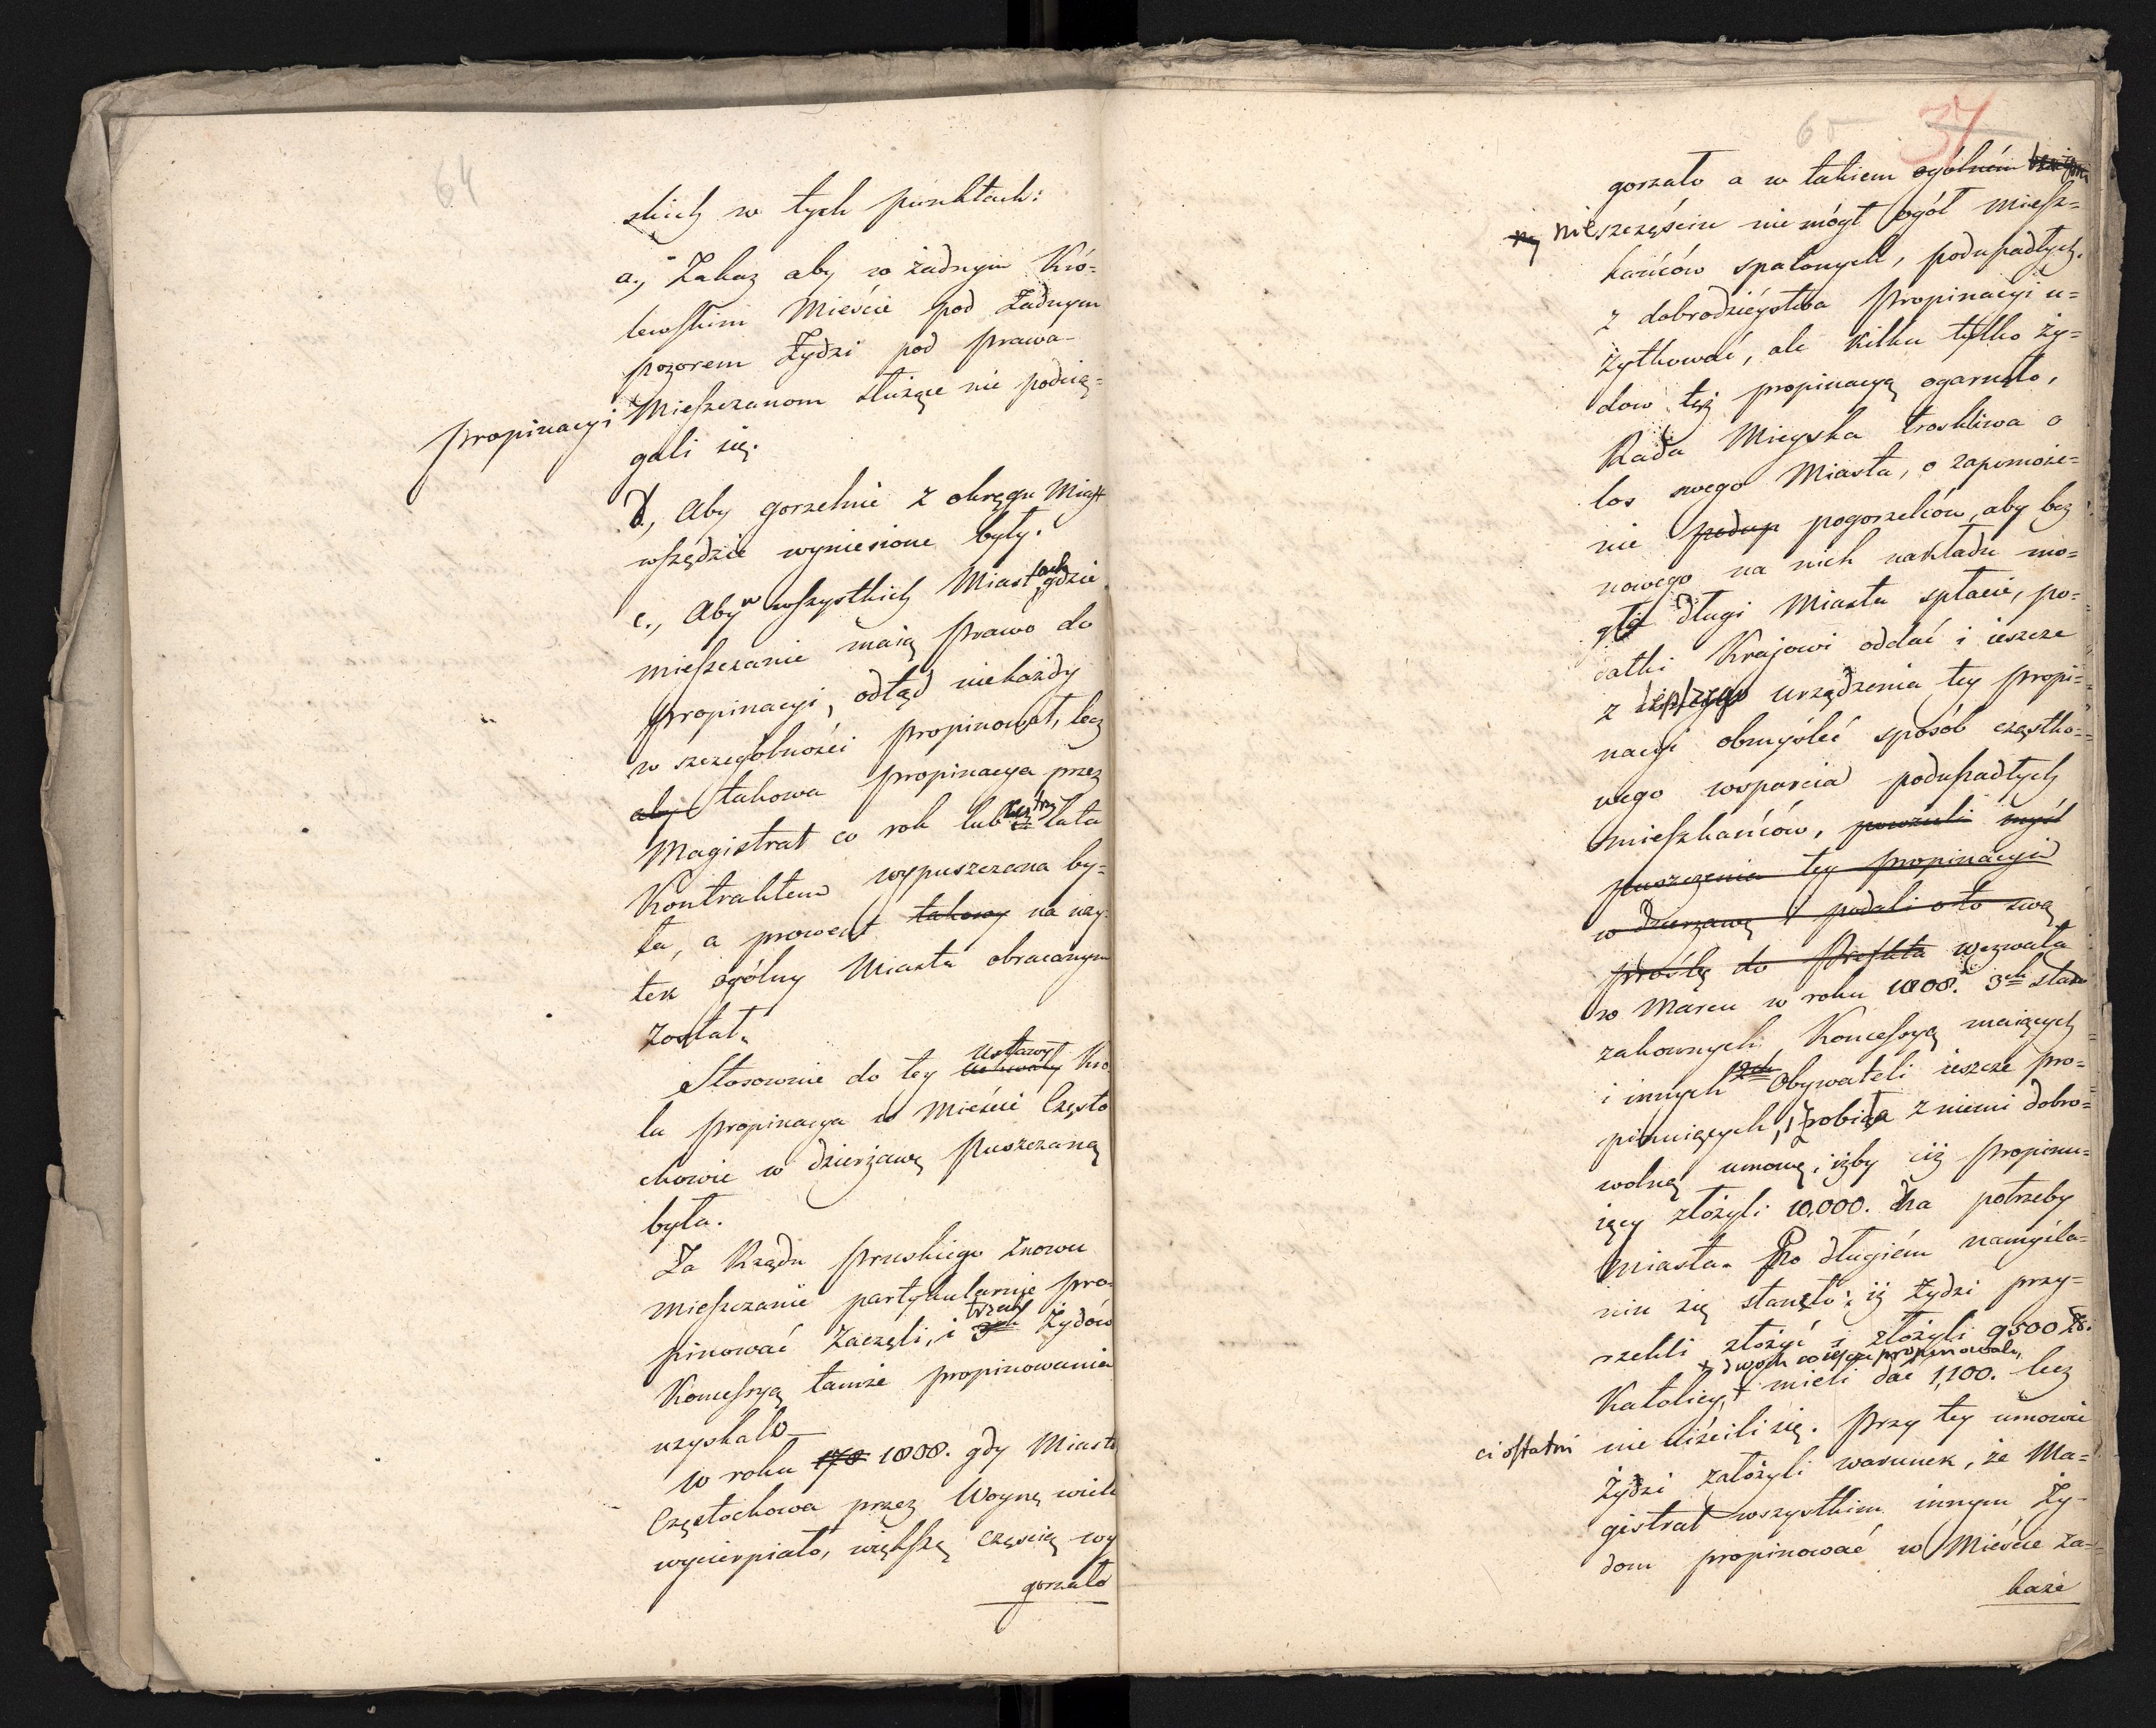 64
skich w tych punktach:
a., Zakaz aby w żadnym Kró-
lewskim Mieście pod żadnym
pozorem Żydzi pod prawa
propinacyi Mieszczanom służące nie podcią-
gali się.
b., Aby gorzelnie z okręgu Miast
wszędzie wyniesione były.
c., Aby w wszystkich Miastach, gdzie
mieszczanie maią prawo do
propinacyi, odtąd niekażdy
w szczególności propinował, lecz
aby takowa propinacya przez
Magistrat co rok lub trzy lata
Kontraktem wypuszczana by-
ła, a prowent takowy na uży-
tek ogólny Miasta obracanym
został.
Stosownie do tey ustawy Kró
la propinacya w Mieście Często
chowie w dzierżawę puszczaną
była.
Za Rządu pruskiego znowu
mieszczanie partykularnie pro-
pinować zaczęli, i trzech Żydów
Koncessyą tamże propinowania
uzyskało
w roku 178 1808. gdy Miasto
Częstochowa przez Woynę wiele
wycierpiało, większą częścią wy
gorzało
65 37
gorzało a w takiem ogólném
nieszczęściu nie mógł ogół miesz-
kańców spalonych, podupadłych
z dobrodzieystwa propinacyi u-
żytkować, ale kilku tylko ży-
dow tęż propinacyą ogarnęło,
Rada Mieyska troskliwa o
los swego Miasta, o zapomoże-
nie podup pogorzelców, aby bez
nowego na nich nakładu mo-
gła długi Miasta spłacić, po-
datki Krajowi oddać i ieszcze
z lepszego urządzenia tey propi-
nacyi obmyśleć sposób cząstko-
wego wsparcia podupadłych
mieszkańców, powzieli myśl
puszczenia tey propinacyi
w dzierzawę i podali o to swą
prośbę do Prefekta wezwała
w Marcu w roku 1808. 3ch staro
zakonnych Koncessyą maiących
i innych 2ch Obywateli ieszcze pro-
pinuiących, i zrobiła z niemi dobro-
wolną umowę, iżby ciż propinu-
iący złożyli 10,000. na potrzeby
miasta. Po długiém namyśla-
niu się stanęło: iż Żydzi przy-
rzekli złożyć i złożyli 9500 Zł.
+ dwoch co ieszcze propinowało,
Katolicy + mieli dać 1,100. lecz
ci ostatni nie uiścili się. Przy tey umowie
Żydzi założyli warunek, że Ma-
gistrat wszystkim innym Ży-
dom propinować w Mieście za-
każe